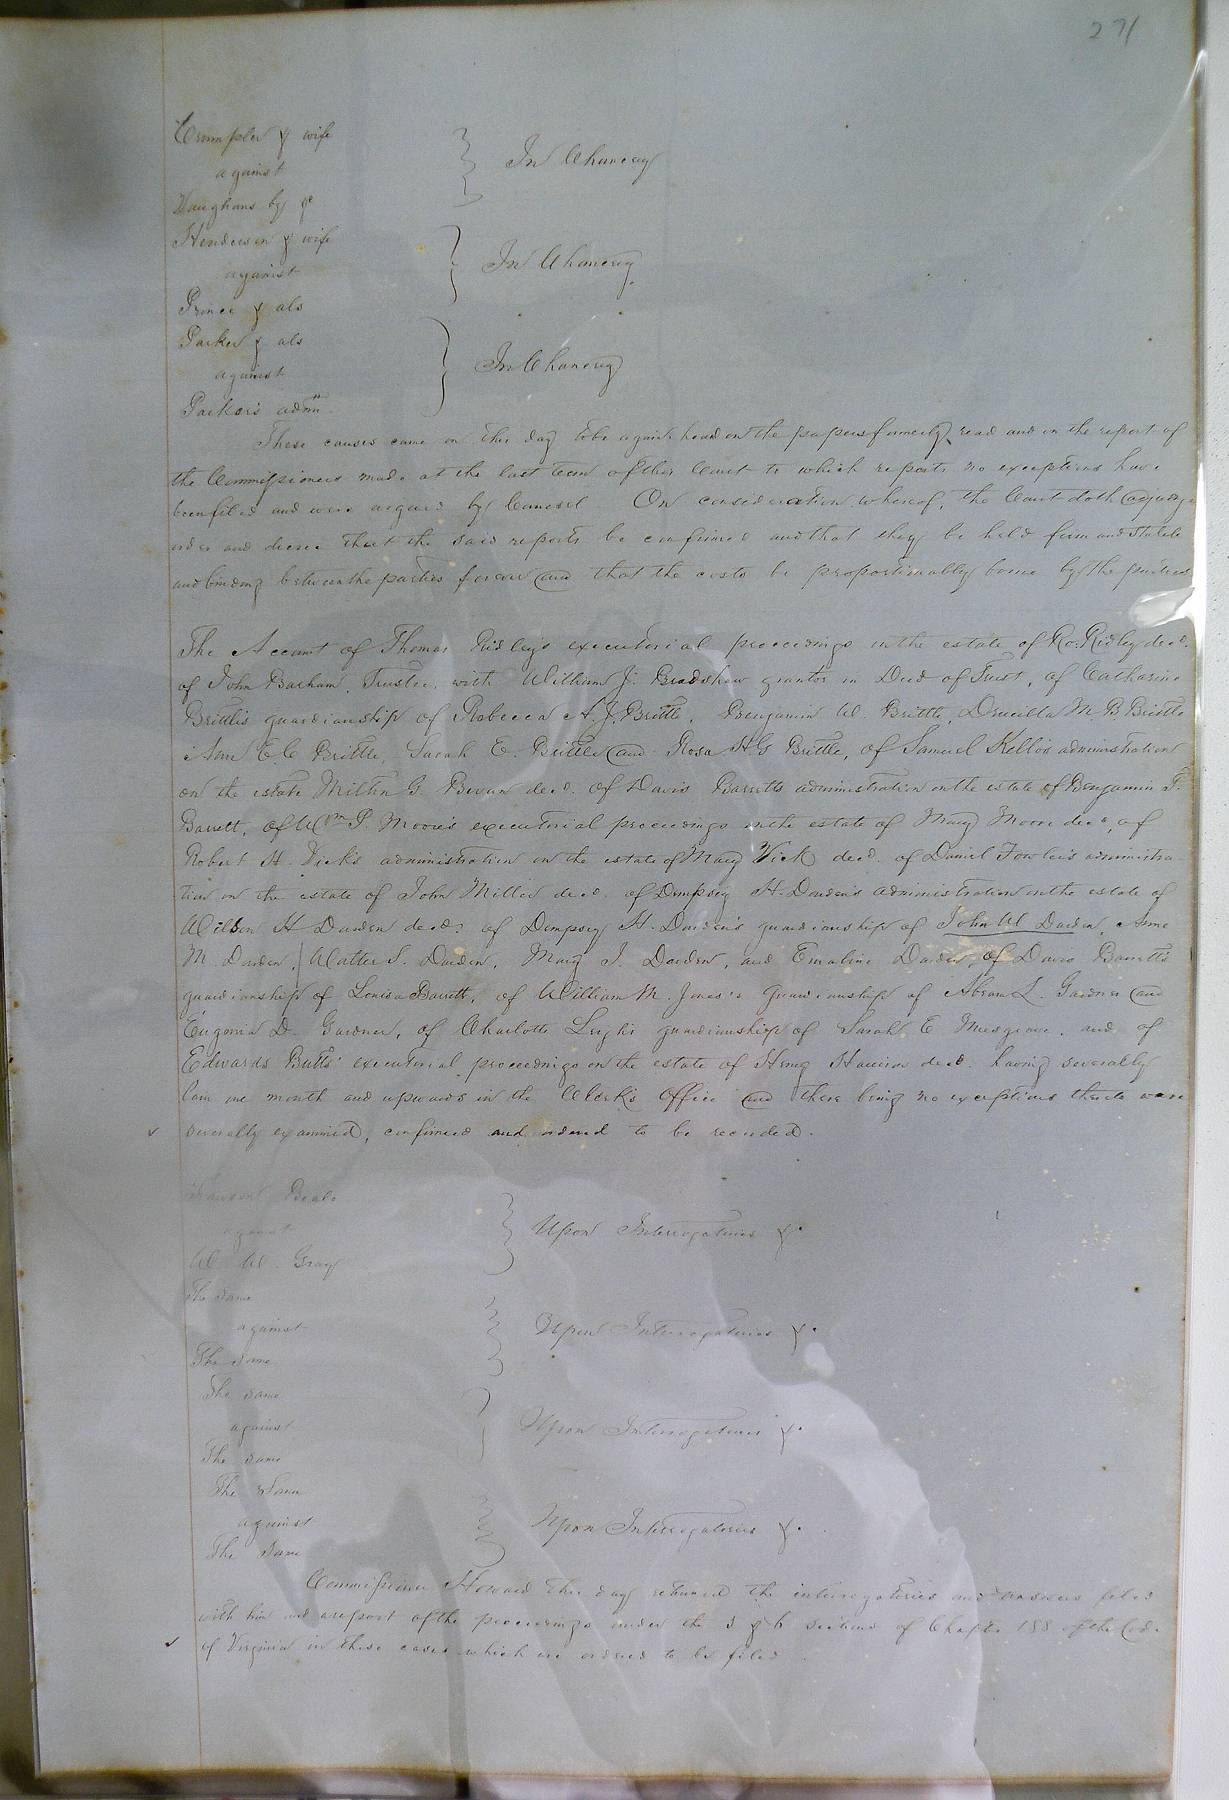 271
Crumpler & wife
against
In Chancery
Vaughans by &c
Henderson & wife
against
In Chancery
Prince & als
Parker & als
against
In Chancery
Parker's admr.
These causes came on this day to be again heard on the papers formerly read and on the report of
the Commissioners made at the last term of this Court to which reports no exceptions have
been filed and were argued by Counsel On consideration whereof, the Court doth adjudge
order and decree that the said reports be confirmed and that they be held firm and stable
and binding between the parties forever and that the costs be proportionably borne by the parties
The Account of Thomas Ridley's executorial proceedings on the estate of Ro: Ridley decd.
of John Barham, Trustee, with William J. Bradshaw grantor in Deed of Trust, of Catharine
Brittle's guardianship of Rebecca A. J. Brittle, Benjamin W. Brittle, Drucilla M. B. Brittle
Ann E. C. Brittle, Sarah E. Brittle and Rosa H. G Brittle, of Samuel Kello's administration
on the estate Milton G. Bevan decd. of Davis Barretts administration on the estate of Benjamin F.
Barrett, of Wm P. Moore's executorial proceedings on the estate of Mary Moore decd, of
Robert H. Vick's administration on the estate of Mary Vick decd. of Daniel Fowler's administra
tion on the estate of John Miller decd. of Dempsey H. Darden's administration on the estate of
Wilson H Darden decd: of Dempsey H. Darden's guardianship of John W Darden, Anne
M. Darden, Walter S. Darden, Mary J. Darden, and Emaline Darden, of Davis Barrett's
guardianship of Louisa Barrett, of William M. Jones's guardianship of Abram L. Gardner and
Eugenia D. Gardner, of Charlotte Leigh's guardianship of Sarah E Musgrave, and of
Edwards Butts' executorial proceedings on the estate of Henry Harrison decd. having severally
lain one month and upwards in the Clerk's Office and there being no exceptions thereto were
severally examined, confirmed and ordered to be recorded.
Beale
against
Upon Interrogatories &c.
W. W. Gray
The same
against
Upon Interrogatories &c.
The same
The same
against
Upon Interrogatories &c.
The same
The same
against
Upon Interrogatories &c.
The same
Commissioner Howard this day returned the interrogatories and answers filed
with him and a report of the proceedings under the 5 & 6 sections of Chapter 188 of the Code
of Virginia in these cases which are ordered to be filed.